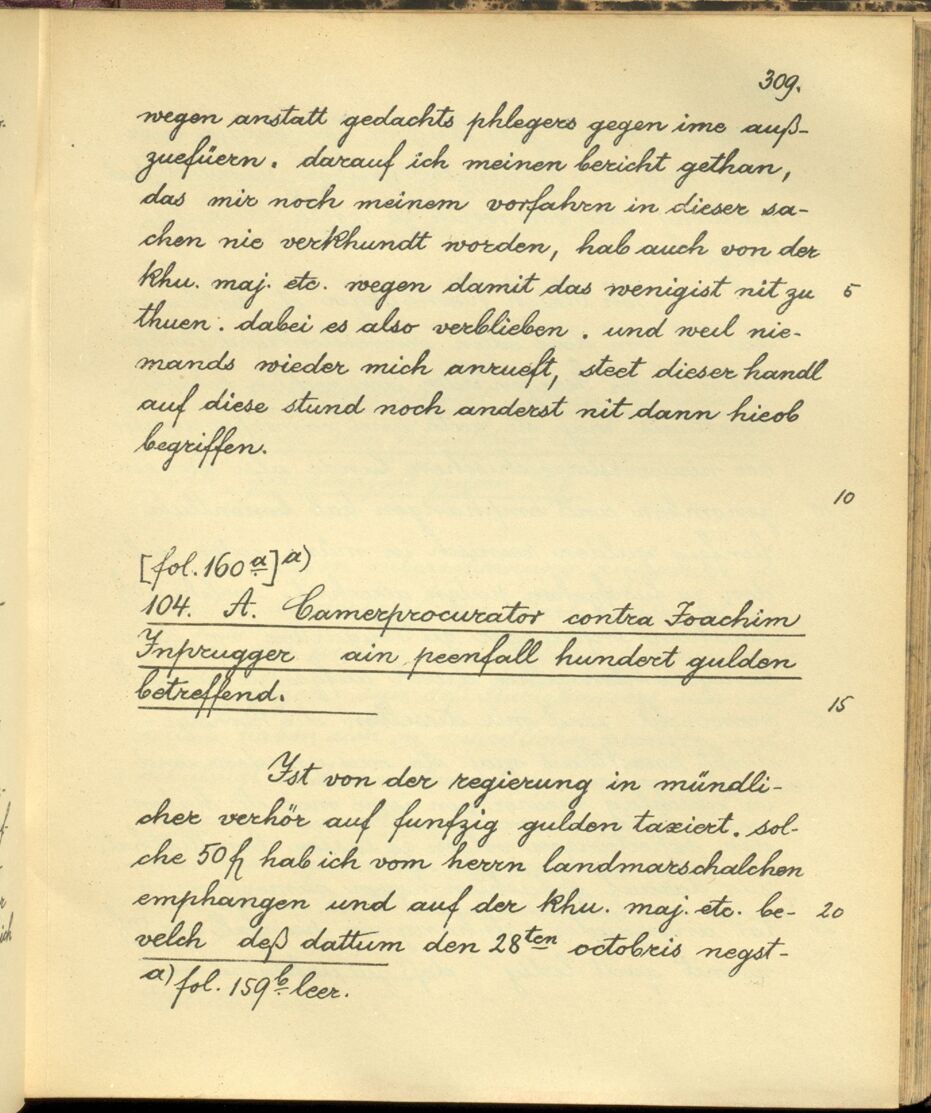 309.
wegen anstatt gedachts phlegers gegen ime auß-
zuefüern. darauf ich meinen bericht gethan,
das mir noch meinem vorfahrn in dieser sa-
chen nie verkhundt worden, hab auch von der
khu. maj. etc. wegen damit das wenigist nit zu 5
thuen. dabei es also verblieben. und weil nie-
mands wieder mich anrueft, steet dieser handl
auf diese stund noch anderst nit dann hieob
begriffen.
10
[fol. 160a]a)
104. A. Camerprocurator contra Joachim
Inprugger ain peenfall hundert gulden
betreffend.
15
Ist von der regierung in mündli-
cher verhör auf funfzig gulden taxiert. sol-
che 50 fl hab ich vom herrn landmarschalchen
emphangen und auf der khu. maj. etc. be- 20
velch deß dattum den 28ten octobris negst-
a) fol. 159b leer.